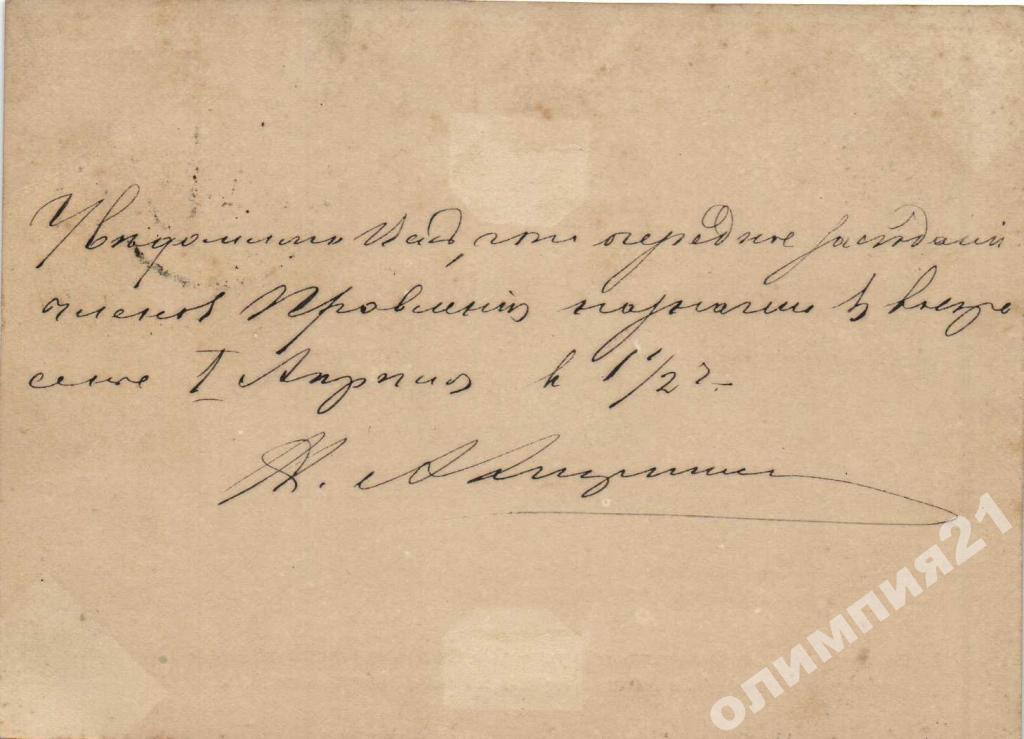 Увѣдомляю Васъ, что очередное засѣданіе
членовъ Правленія назначено въ воскре
сенье 1 Апрѣля въ 1 1/2 ч.
олимпия21